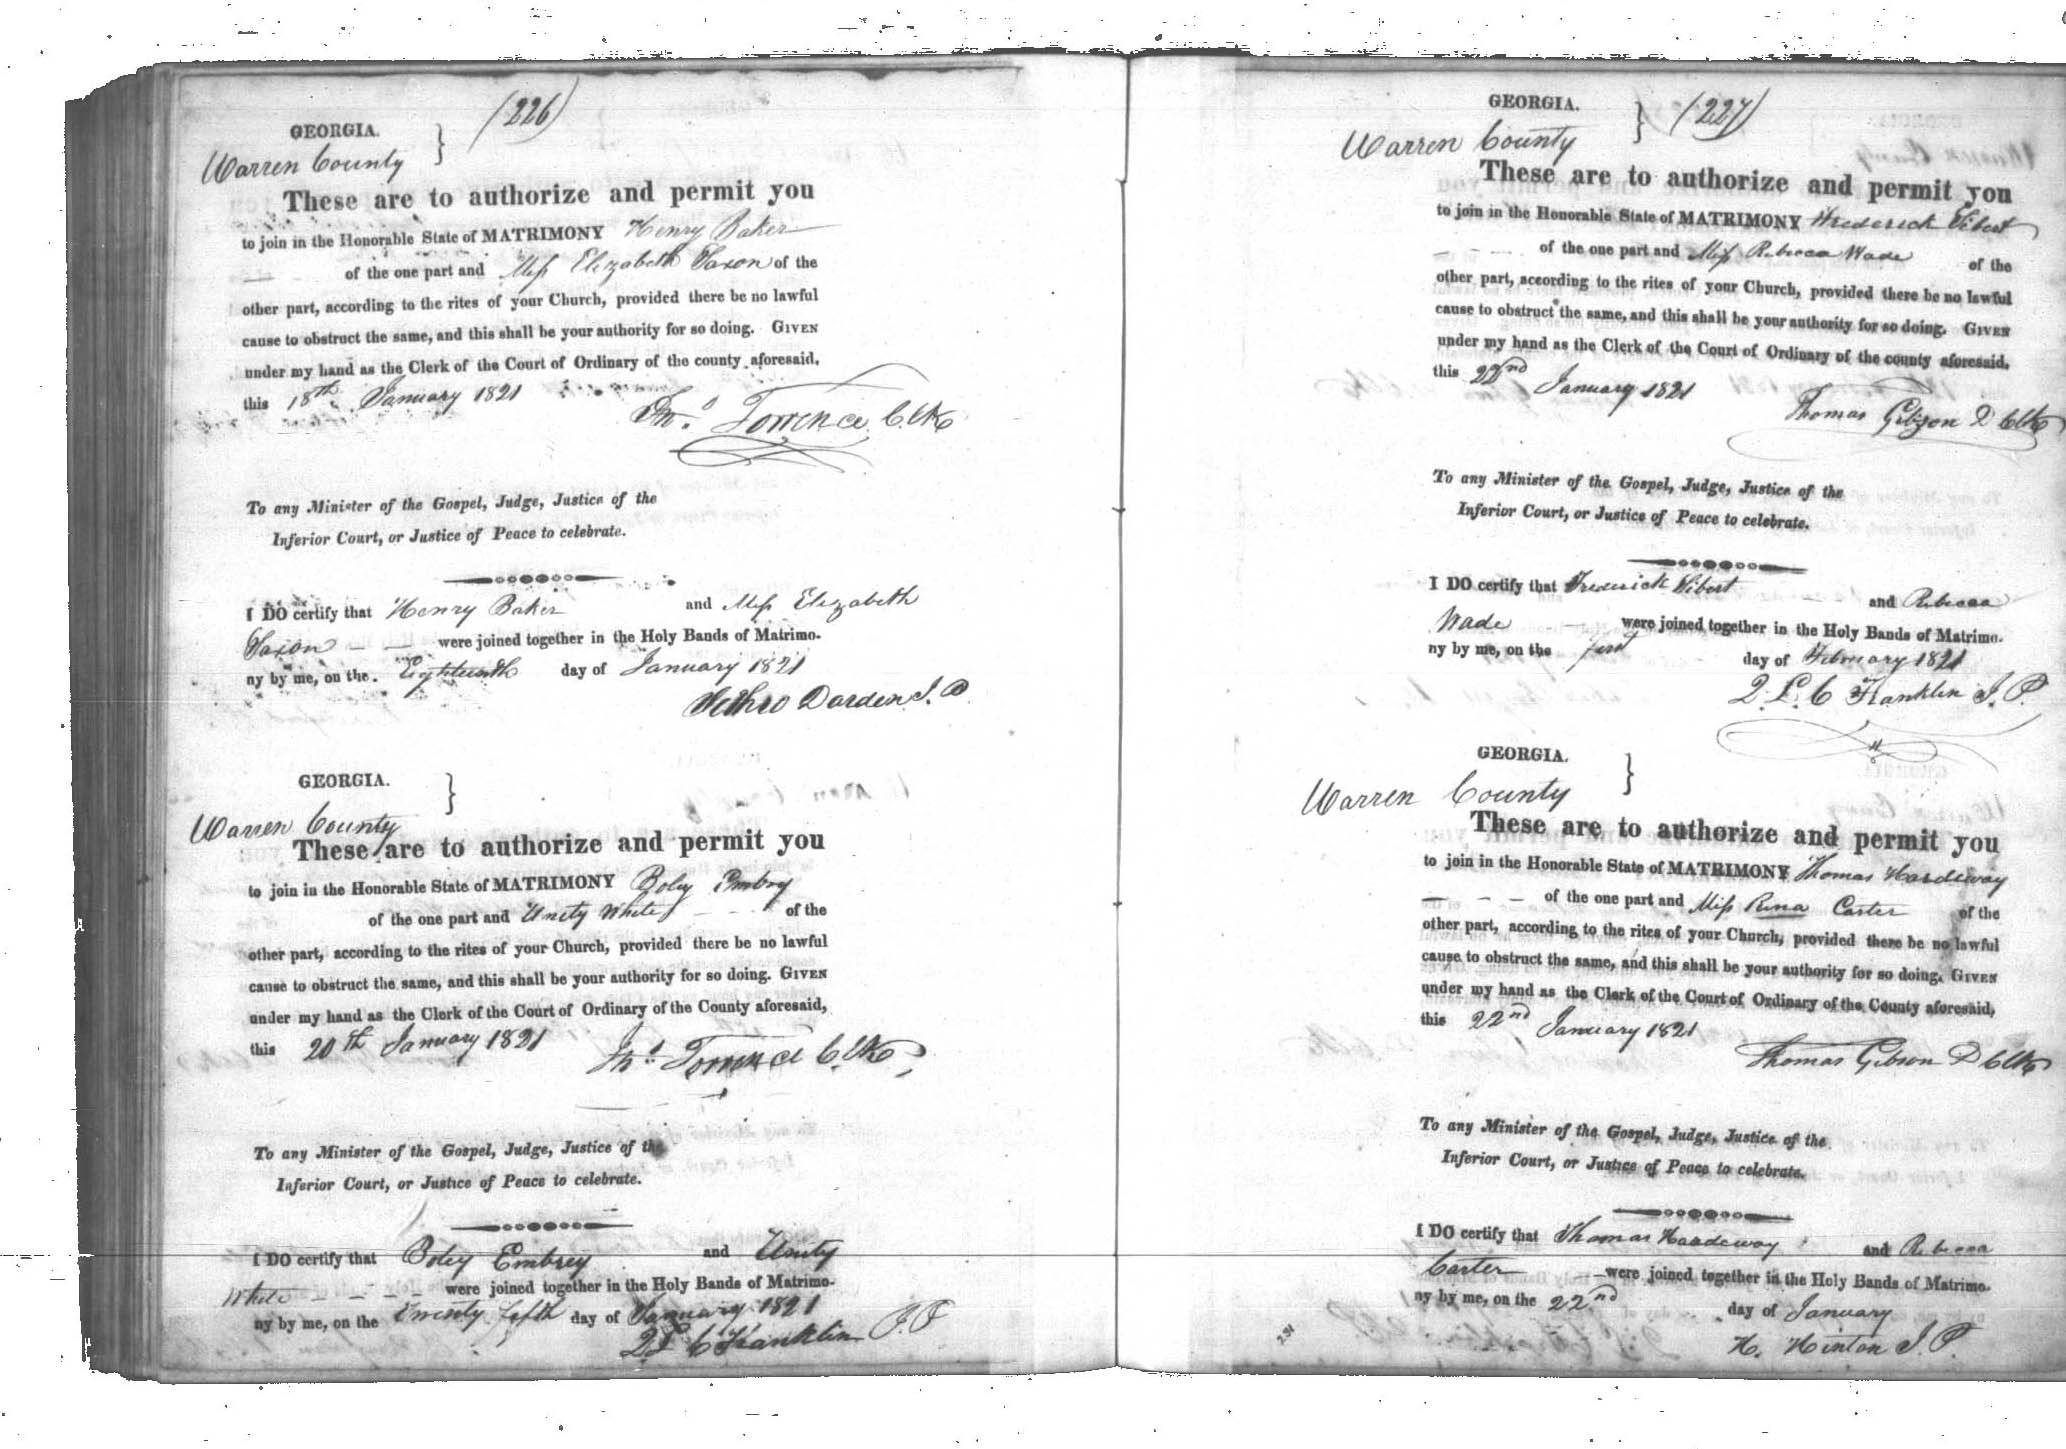 (226)
GEORGIA. }
Warren County
These are to authorize and permit you
to join in the Honorable State of MATRIMONY Henry Baker
— — of the one part and Miss Elizabeth Saxon of the
other part, according to the rites of your Church, provided there be no lawful
cause to obstruct the same, and this shall be your authority for so doing. GIVEN
under my hand as the Clerk of the Court of Ordinary of the county aforesaid,
this 18th January 1821
Jno. Torrence Clk
To any Minister of the Gospel, Judge, Justice of the
Inferior Court, or Justice of Peace to celebrate.
I DO certify that Henry Baker and Miss Elizabeth
Saxon — — were joined together in the Holy Bands of Matrimo-
ny by me, on the Eighteenth day of January 1821
Jethro Darden J. P.
GEORGIA. }
Warren County
These are to authorize and permit you
to join in the Honorable State of MATRIMONY Boley Embry
of the one part and Unity White — - of the
other part, according to the rites of your Church, provided there be no lawful
cause to obstruct the same, and this shall be your authority for so doing. GIVEN
under my hand as the Clerk of the Court of Ordinary of the County aforesaid,
this 20th January 1821
Jno. Torrence Clk
To any Minister of the Gospel, Judge, Justice of the
Inferior Court, or Justice of Peace to celebrate.
I DO certify that Boley Embrey and Unity
White — — — — were joined together in the Holy Bands of Matrimo-
ny by me, on the twenty fifth day of January 1821
Q L C Franklin J. P
(227)
GEORGIA. }
Warren County
These are to authorize and permit you
to join in the Honorable State of MATRIMONY Frederick Vibert
— - — of the one part and Miss Rebecca Wade of the
other part, according to the rites of your Church, provided there be no lawful
cause to obstruct the same, and this shall be your authority for so doing. GIVEN
under my hand as the Clerk of the Court of Ordinary of the county aforesaid,
this 22nd January 1821
Thomas Gibson D Clk
To any Minister of the Gospel, Judge, Justice of the
Inferior Court, or Justice of Peace to celebrate.
I DO certify that Frederick Vibert and Rebecca
Wade — were joined together in the Holy Bands of Matrimo-
ny by me, on the first day of February 1821
Q. L. C Franklin J. P.
GEORGIA. }
Warren County
These are to authorize and permit you
to join in the Honorable State of MATRIMONY Thomas Hardeway
— — — of the one part and Miss Rena Carter of the
other part, according to the rites of your Church, provided there be no lawful
cause to obstruct the same, and this shall be your authority for so doing. GIVEN
under my hand as the Clerk of the Court of Ordinary of the County aforesaid,
this 22nd January 1821
Thomas Gibson D Clk
To any Minister of the Gospel, Judge, Justice of the
Inferior Court, or Justice of Peace to celebrate.
I DO certify that Thomas Hardeway and Rebecca
Carter — were joined together in the Holy Bands of Matrimo-
ny by me, on the 22nd day of January
H. Hinton J. P.
231